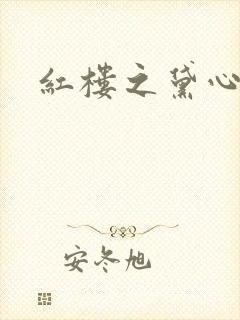 紅樓之黛心
安冬旭